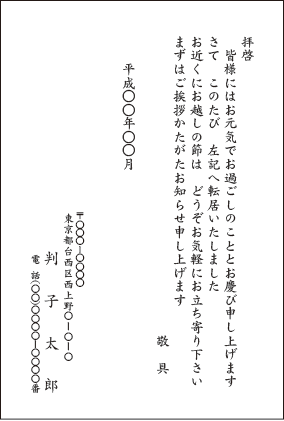 拝啓
皆様にはお元気でお過ごしのこととお慶び申し上げます
さて このたび 左記へ転居いたしました
お近くにお越しの節は どうぞお気軽にお立ち寄り下さい
まずはご挨拶かたがたお知らせ申し上げます
敬具
平成〇〇年〇〇月
〒〇〇〇―〇〇〇〇
東京都台西区西上野〇―〇―〇
判子太郎
電話(〇〇)〇〇〇〇―〇〇〇〇番